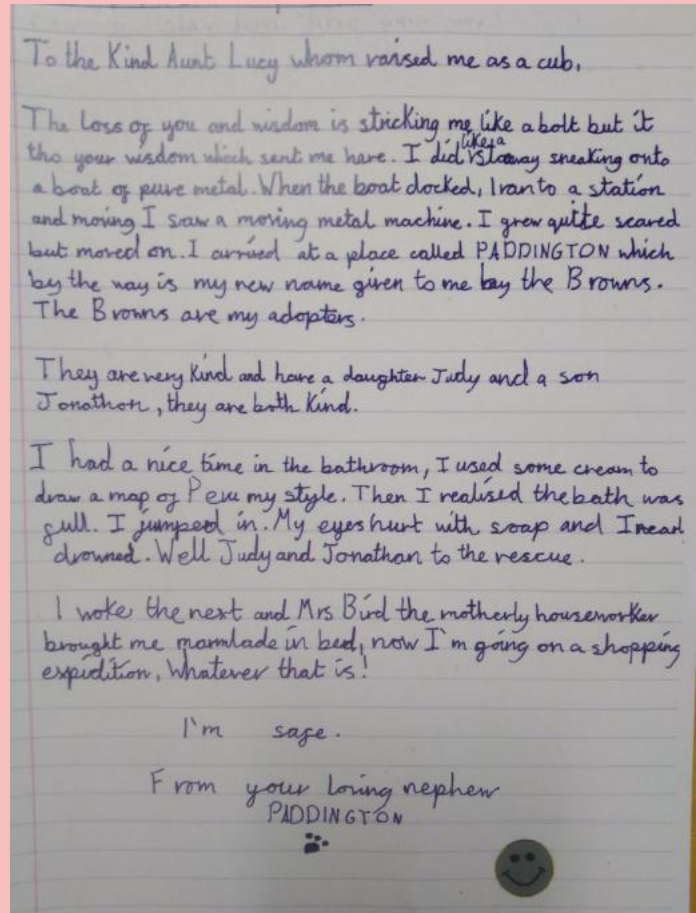 To the Kind Aunt Lucy whom raised me as a cub,
The loss of you and wisdom is stricking me like a bolt but it
tho your wisdom which sent me here. I did like a stoway sneaking onto
a boat of pure metal. When the boat docked, I ran to a station
and moving I saw a moving metal machine. I grew quite scared
but moved on. I arrived at a place called PADDINGTON which
by the way is my new name given to me by the Browns.
The Browns are my adopters.
They are very Kind and have a daughter Judy and a son
Jonathon, they are both Kind.
I had a nice time in the bathroom, I used some cream to
draw a map of Peru my style. Then I realised the bath was
full. I jumped in. My eyes hurt with soap and I near
drowned. Well Judy and Jonathan to the rescue.
I woke the next and Mrs Bird the motherly houseworker
brought me marmlade in bed, now I'm going on a shopping
expidition, Whatever that is!
I'm safe.
From your loving nephew
PADDINGTON